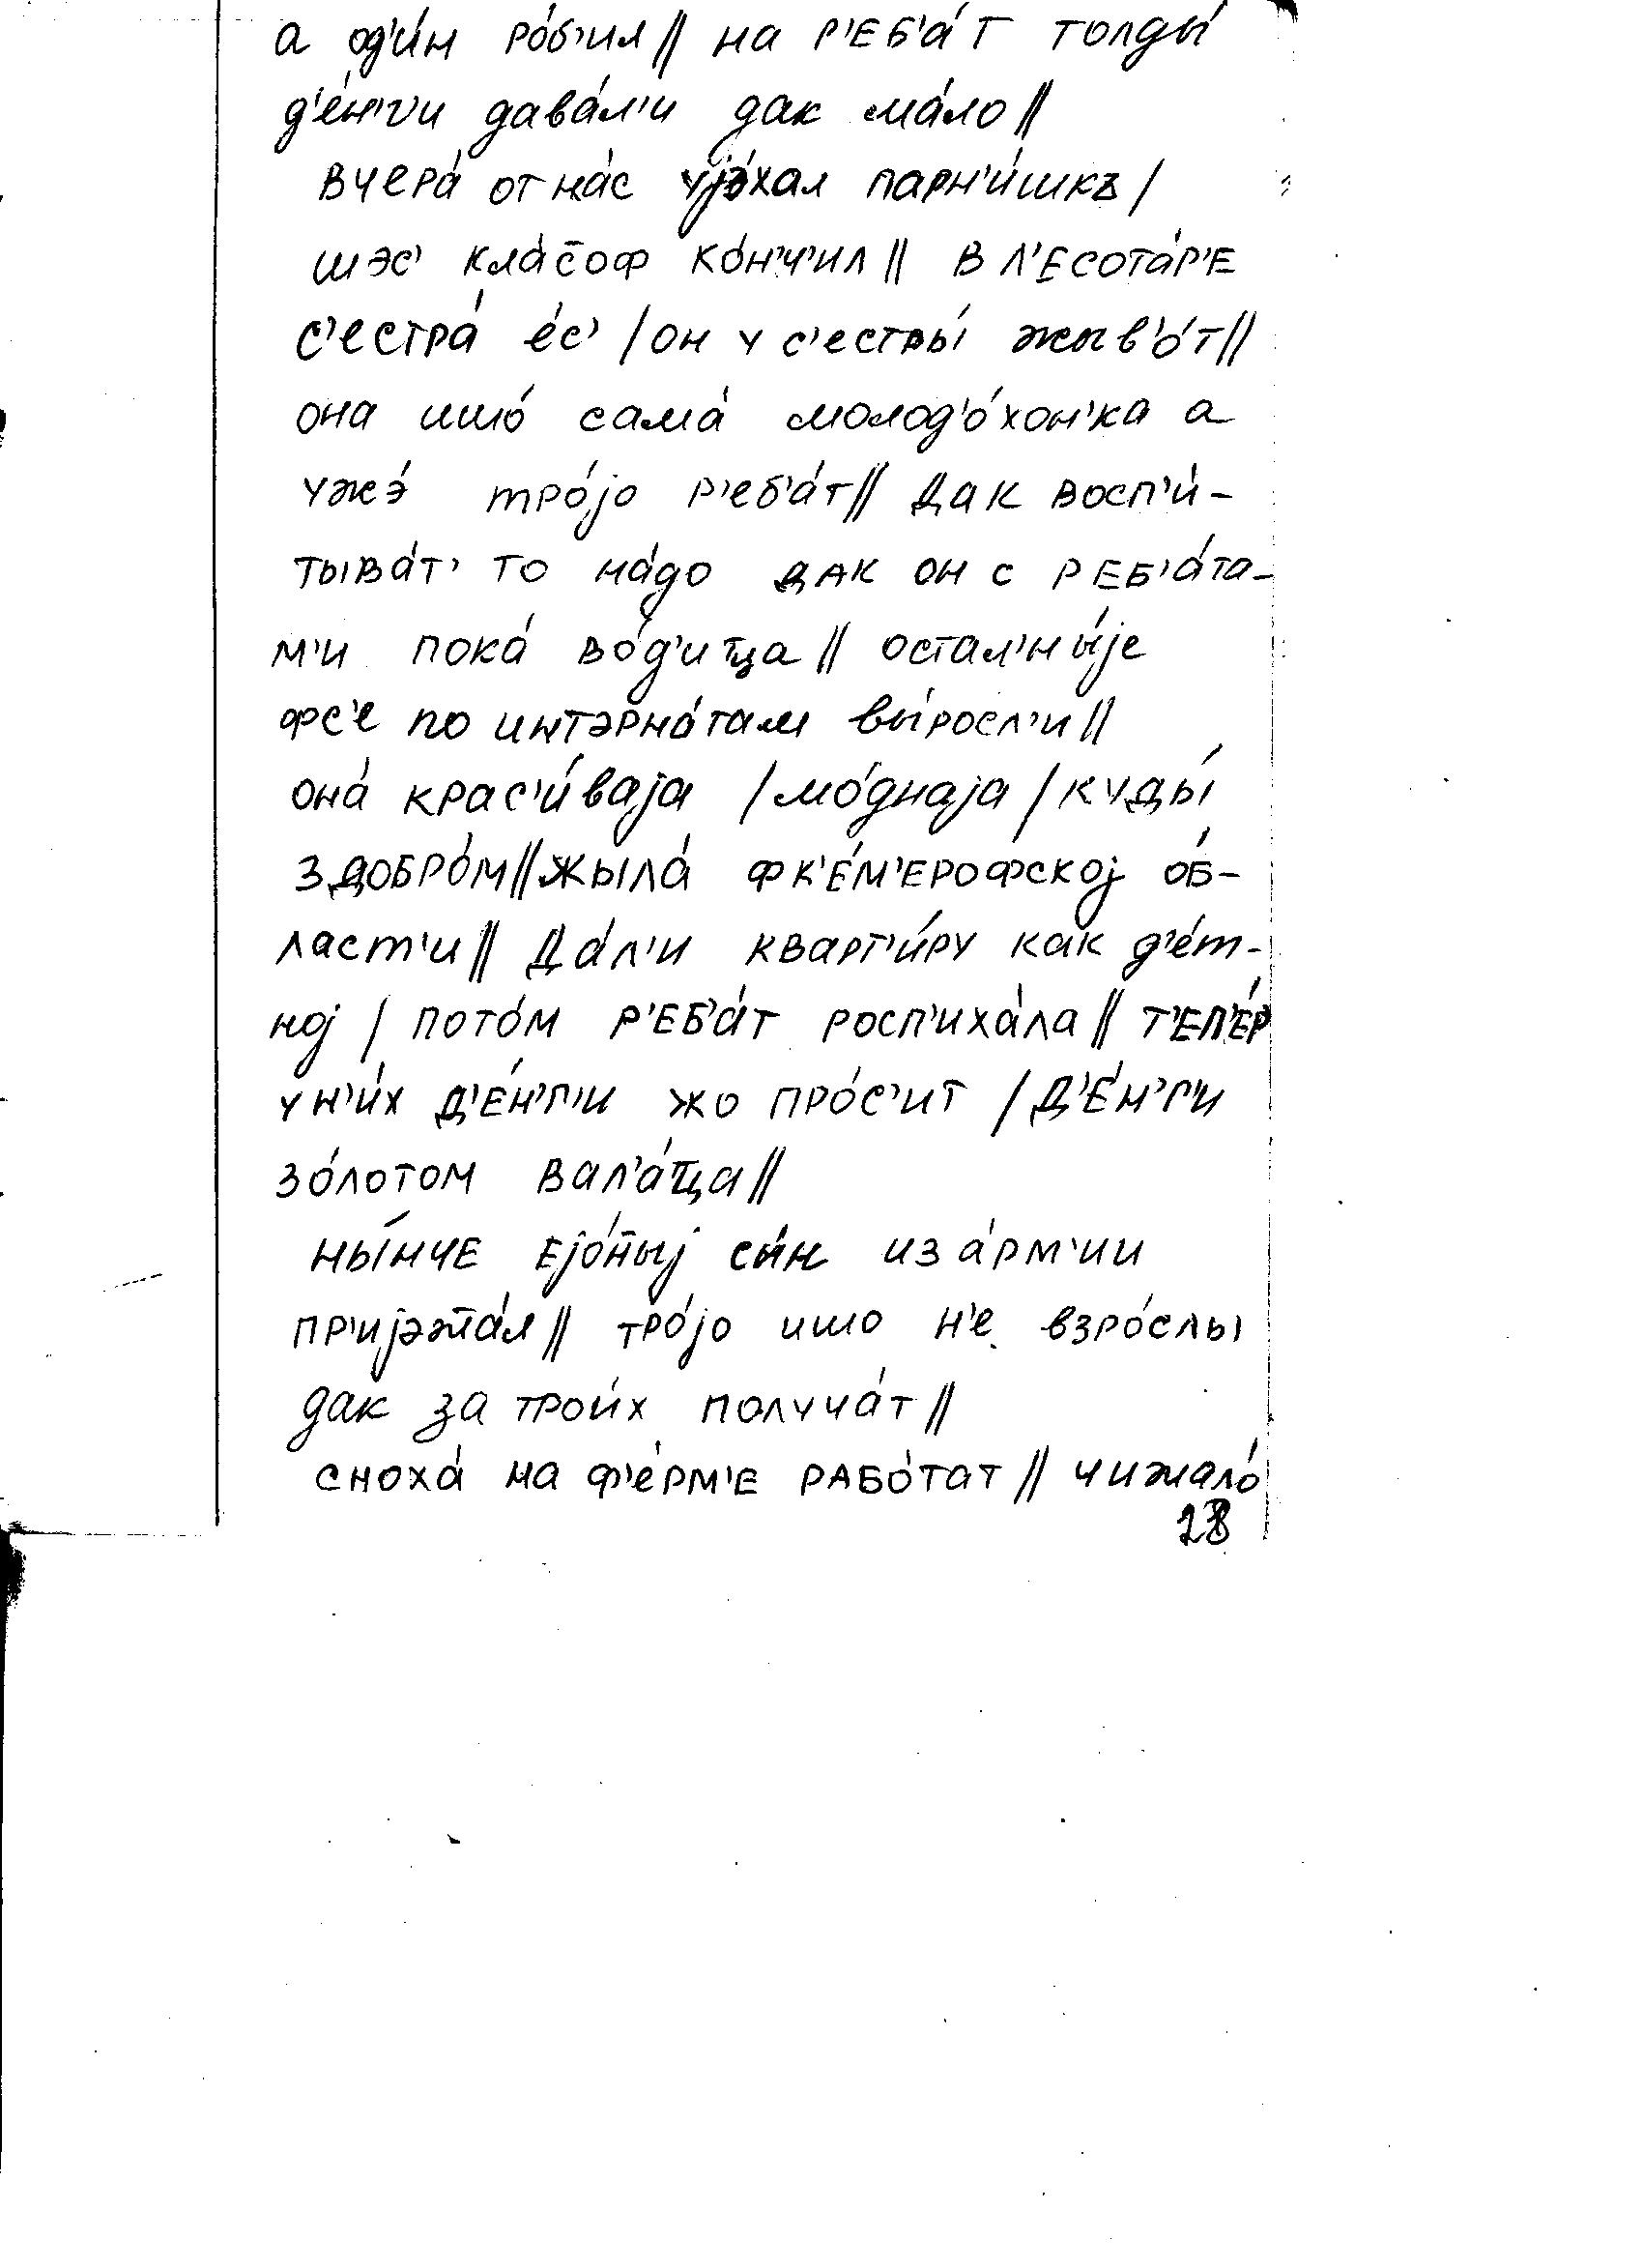 а од'и́н ро́б'ил // на р'еб'а́т толды́
д'е́н'ги дава́л'и дак ма́ло //
вчера́ от на́с ујэ́хал парн'и́шкъ /
шэс' кла́с̄оф ко́н'ч'ил // в л'есота́р'е
с'естра́ е́с' / он у с'естры́ жыв'о́т //
она ишо́ сама́ молод'о́хон'ка а
ужэ́ тро́јо р'еб'а́т // дак восп'и́-
тыва́т' то на́до дак он с реб'а́та-
м'и пока́ во́д'ит̄ца // остал'ны́је
фс'е по интэрна́там вы́росл'и //
она́ крас'и́ваја / мо́днаја / куды́
здобро́м // жыла́ фк'е́м'ерофској о́б-
ласт'и // да́л'и кварт'и́ру как д'е́т-
ној / пото́м р'еб'а́т росп'иха́ла // т'еп'е́р
ун'и́х д'е́н'г'и жо про́с'ит / д'е́н'г'и
зо́лотом вал'а́т̄ца //
ны́нче ејо́н̄ыј сы́н из а́рм'ии
пр'ијэж̄а́л // тро́јо ишо н'е взро́слы
дак за трои́х получа́т //
сноха́ на ф'е́рм'е рабо́тат // чижало́
28